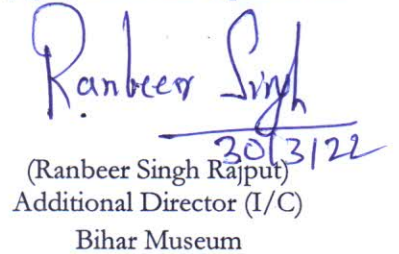 Ranbeer Singh
30/3/22
(Ranbeer Singh Rajput)
Additional Director (I/C)
Bihar Museum